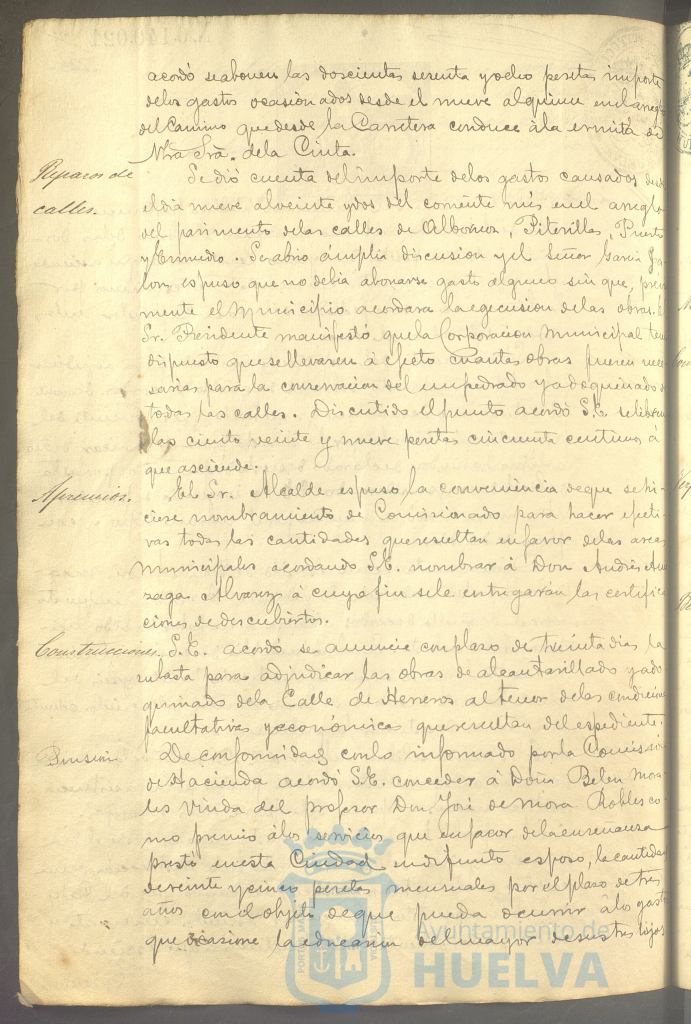 acordó se abonen las doscientas sesenta y ocho pesetas importe
de los gastos ocasionados desde el nueve al quince en el arreglo
del Camino que desde la Carretera conduce á la ermita de
Ntra Sra. de la Cinta.
Reparos de
calles.
Se dió cuenta del importe de los gastos causados desde
el dia nueve al veinte y dos del corriente mes en el arreglo
del pavimento de las calles de Albornoz, Piterillas, Puerto
y Enmedio. Se abrio ámplia discusion y el Señor Garcia
espuso que no debia abonarse gasto alguno sin que,
mente el Municipio acordara la egecusion de las obras. El
Sr. Presidente manifestó que la Corporacion Municipal
dispuesto que se llevaren á efecto cuantas obras fueren nece
sarias para la conservacion del empedrado y adoquinado de
todas las calles. Discutido el punto acordó S.E. se libren
las ciento veinte y nueve pesetas cincuenta centimos á
que asciende.
Apremios.
El Sr. Alcalde espuso la conveniencia de que se hi-
ciese nombramiento de Comisionado para hacer efecti-
vas todas las cantidades que resultan en favor de las arcas
municipales acordando S.E. nombrar á Don Andrés
Alvarez á cuyo fin se le entregarán las certifica
ciones de descubiertos.
Construcciones.
S.E. acordó se anuncie con plazo de treinta dias la
subasta para adjudicar las obras de alcantarillado y ado
quinado de la Calle de Herreros al tenor de las condiciones
facultativas y económicas que resultan del espediente.
Pension
De conformidad con lo informado por la Comision
de Hacienda acordó S.E. conceder á Doña Belen Mora
les viuda del profesor Don José de Mora Robles co
mo premio á los servicios que en favor de la enseñanza
prestó en esta Ciudad su difunto esposo, la cantidad
de veinte y cinco pesetas mensuales por el plazo de tres
años con el objeto de que pueda ocurrir á los gastos
que ocasione la educacion del mayor de sus tres hijos
Ayuntamiento de
HUELVA